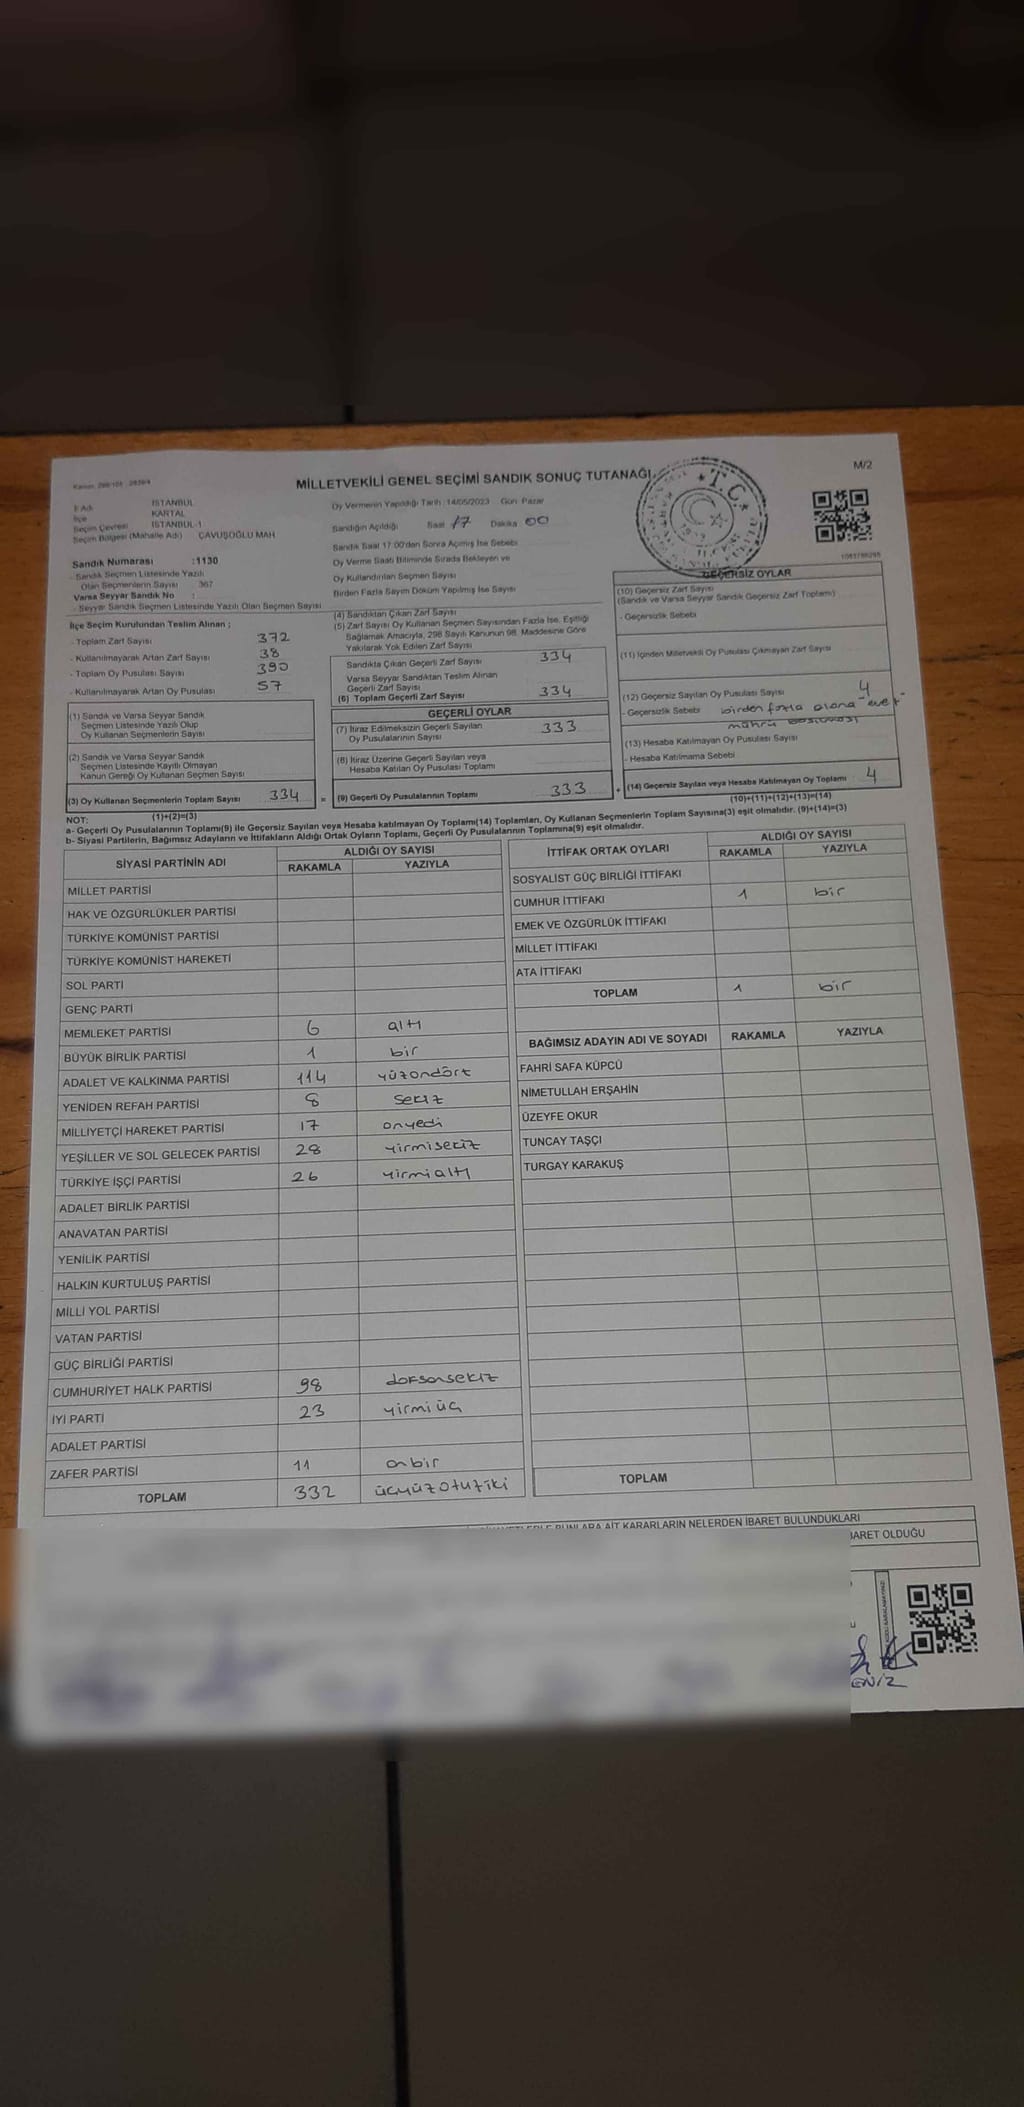 Kanun: 298/105 ; 2839/4
MİLLETVEKİLİ GENEL SEÇİMİ SANDIK SONUÇ TUTANAĞI
M/2
İl Adı İSTANBUL
İlçe KARTAL
Seçim Çevresi İSTANBUL-1
Seçim Bölgesi (Mahalle Adı) ÇAVUŞOĞLU MAH
Sandık Numarası :1130
- Sandık Seçmen Listesinde Yazılı
Olan Seçmenlerin Sayısı : 367
Varsa Seyyar Sandık No :
- Seyyar Sandık Seçmen Listesinde Yazılı Olan Seçmen Sayısı
İlçe Seçim Kurulundan Teslim Alınan ;
- Toplam Zarf Sayısı 372
- Kullanılmayarak Artan Zarf Sayısı 38
- Toplam Oy Pusulası Sayısı 390
- Kullanılmayarak Artan Oy Pusulası 57
(1) Sandık ve Varsa Seyyar Sandık
Seçmen Listesinde Yazılı Olup
Oy Kullanan Seçmenlerin Sayısı
(2) Sandık ve Varsa Seyyar Sandık
Seçmen Listesinde Kayıtlı Olmayan
Kanun Gereği Oy Kullanan Seçmen Sayısı
(3) Oy Kullanan Seçmenlerin Toplam Sayısı 334 =
(1)+(2)=(3)
Oy Vermenin Yapıldığı Tarih : 14/05/2023 Gün: Pazar
Sandığın Açıldığı Saat 17 Dakika 00
Sandık Saat 17:00'den Sonra Açılmış İse Sebebi
Oy Verme Saati Bitiminde Sırada Bekleyen ve
Oy Kullandırılan Seçmen Sayısı
Birden Fazla Sayım Döküm Yapılmış İse Sayısı
(4) Sandıktan Çıkan Zarf Sayısı
(5) Zarf Sayısı Oy Kullanan Seçmen Sayısından Fazla İse, Eşitliği
Sağlamak Amacıyla, 298 Sayılı Kanunun 98. Maddesine Göre
Yakılarak Yok Edilen Zarf Sayısı
Sandıkta Çıkan Geçerli Zarf Sayısı 334
Varsa Seyyar Sandıktan Teslim Alınan
Geçerli Zarf Sayısı
(6) Toplam Geçerli Zarf Sayısı 334
GEÇERLİ OYLAR
(7) İtiraz Edilmeksizin Geçerli Sayılan
Oy Pusulalarının Sayısı 333
(8) İtiraz Üzerine Geçerli Sayılan veya
Hesaba Katılan Oy Pusulası Toplamı
(9) Geçerli Oy Pusulalarının Toplamı 333 +
T.C.
1061788295
GEÇERSİZ OYLAR
(10) Geçersiz Zarf Sayısı
(Sandık ve Varsa Seyyar Sandık Geçersiz Zarf Toplamı)
- Geçersizlik Sebebi
(11) İçinden Milletvekili Oy Pusulası Çıkmayan Zarf Sayısı
(12) Geçersiz Sayılan Oy Pusulası Sayısı 4
- Geçersizlik Sebebi birden fazla alana "evet"
mührü basılması
(13) Hesaba Katılmayan Oy Pusulası Sayısı
- Hesaba Katılmama Sebebi
(14) Geçersiz Sayılan veya Hesaba Katılmayan Oy Toplamı 4
(10)+(11)+(12)+(13)=(14)
NOT:
a- Geçerli Oy Pusulalarının Toplamı(9) ile Geçersiz Sayılan veya Hesaba katılmayan Oy Toplamı(14) Toplamları, Oy Kullanan Seçmenlerin Toplam Sayısına(3) eşit olmalıdır. (9)+(14)=(3)
b- Siyasi Partilerin, Bağımsız Adayların ve İttifakların Aldığı Ortak Oyların Toplamı, Geçerli Oy Pusulalarının Toplamına(9) eşit olmalıdır.
SİYASİ PARTİNİN ADI ALDIĞI OY SAYISI
RAKAMLA YAZIYLA
MİLLET PARTİSİ
HAK VE ÖZGÜRLÜKLER PARTİSİ
TÜRKİYE KOMÜNİST PARTİSİ
TÜRKİYE KOMÜNİST HAREKETİ
SOL PARTİ
GENÇ PARTİ
MEMLEKET PARTİSİ 6 altı
BÜYÜK BİRLİK PARTİSİ 1 bir
ADALET VE KALKINMA PARTİSİ 114 yüzondört
YENİDEN REFAH PARTİSİ 8 sekiz
MİLLİYETÇİ HAREKET PARTİSİ 17 onyedi
YEŞİLLER VE SOL GELECEK PARTİSİ 28 yirmisekiz
TÜRKİYE İŞÇİ PARTİSİ 26 yirmialtı
ADALET BİRLİK PARTİSİ
ANAVATAN PARTİSİ
YENİLİK PARTİSİ
HALKIN KURTULUŞ PARTİSİ
MİLLİ YOL PARTİSİ
VATAN PARTİSİ
GÜÇ BİRLİĞİ PARTİSİ
CUMHURİYET HALK PARTİSİ 98 doksansekiz
İYİ PARTİ 23 yirmiüç
ADALET PARTİSİ
ZAFER PARTİSİ 11 onbir
TOPLAM 332 üçyüzotuziki
İTTİFAK ORTAK OYLARI ALDIĞI OY SAYISI
RAKAMLA YAZIYLA
SOSYALİST GÜÇ BİRLİĞİ İTTİFAKI
CUMHUR İTTİFAKI 1 bir
EMEK VE ÖZGÜRLÜK İTTİFAKI
MİLLET İTTİFAKI
ATA İTTİFAKI
TOPLAM 1 bir
BAĞIMSIZ ADAYIN ADI VE SOYADI RAKAMLA YAZIYLA
FAHRİ SAFA KÜPCÜ
NİMETULLAH ERŞAHİN
ÜZEYFE OKUR
TUNCAY TAŞÇI
TURGAY KARAKUŞ
TOPLAM
BUNLARA AİT KARARLARIN NELERDEN İBARET BULUNDUKLARI
İBARET OLDUĞU